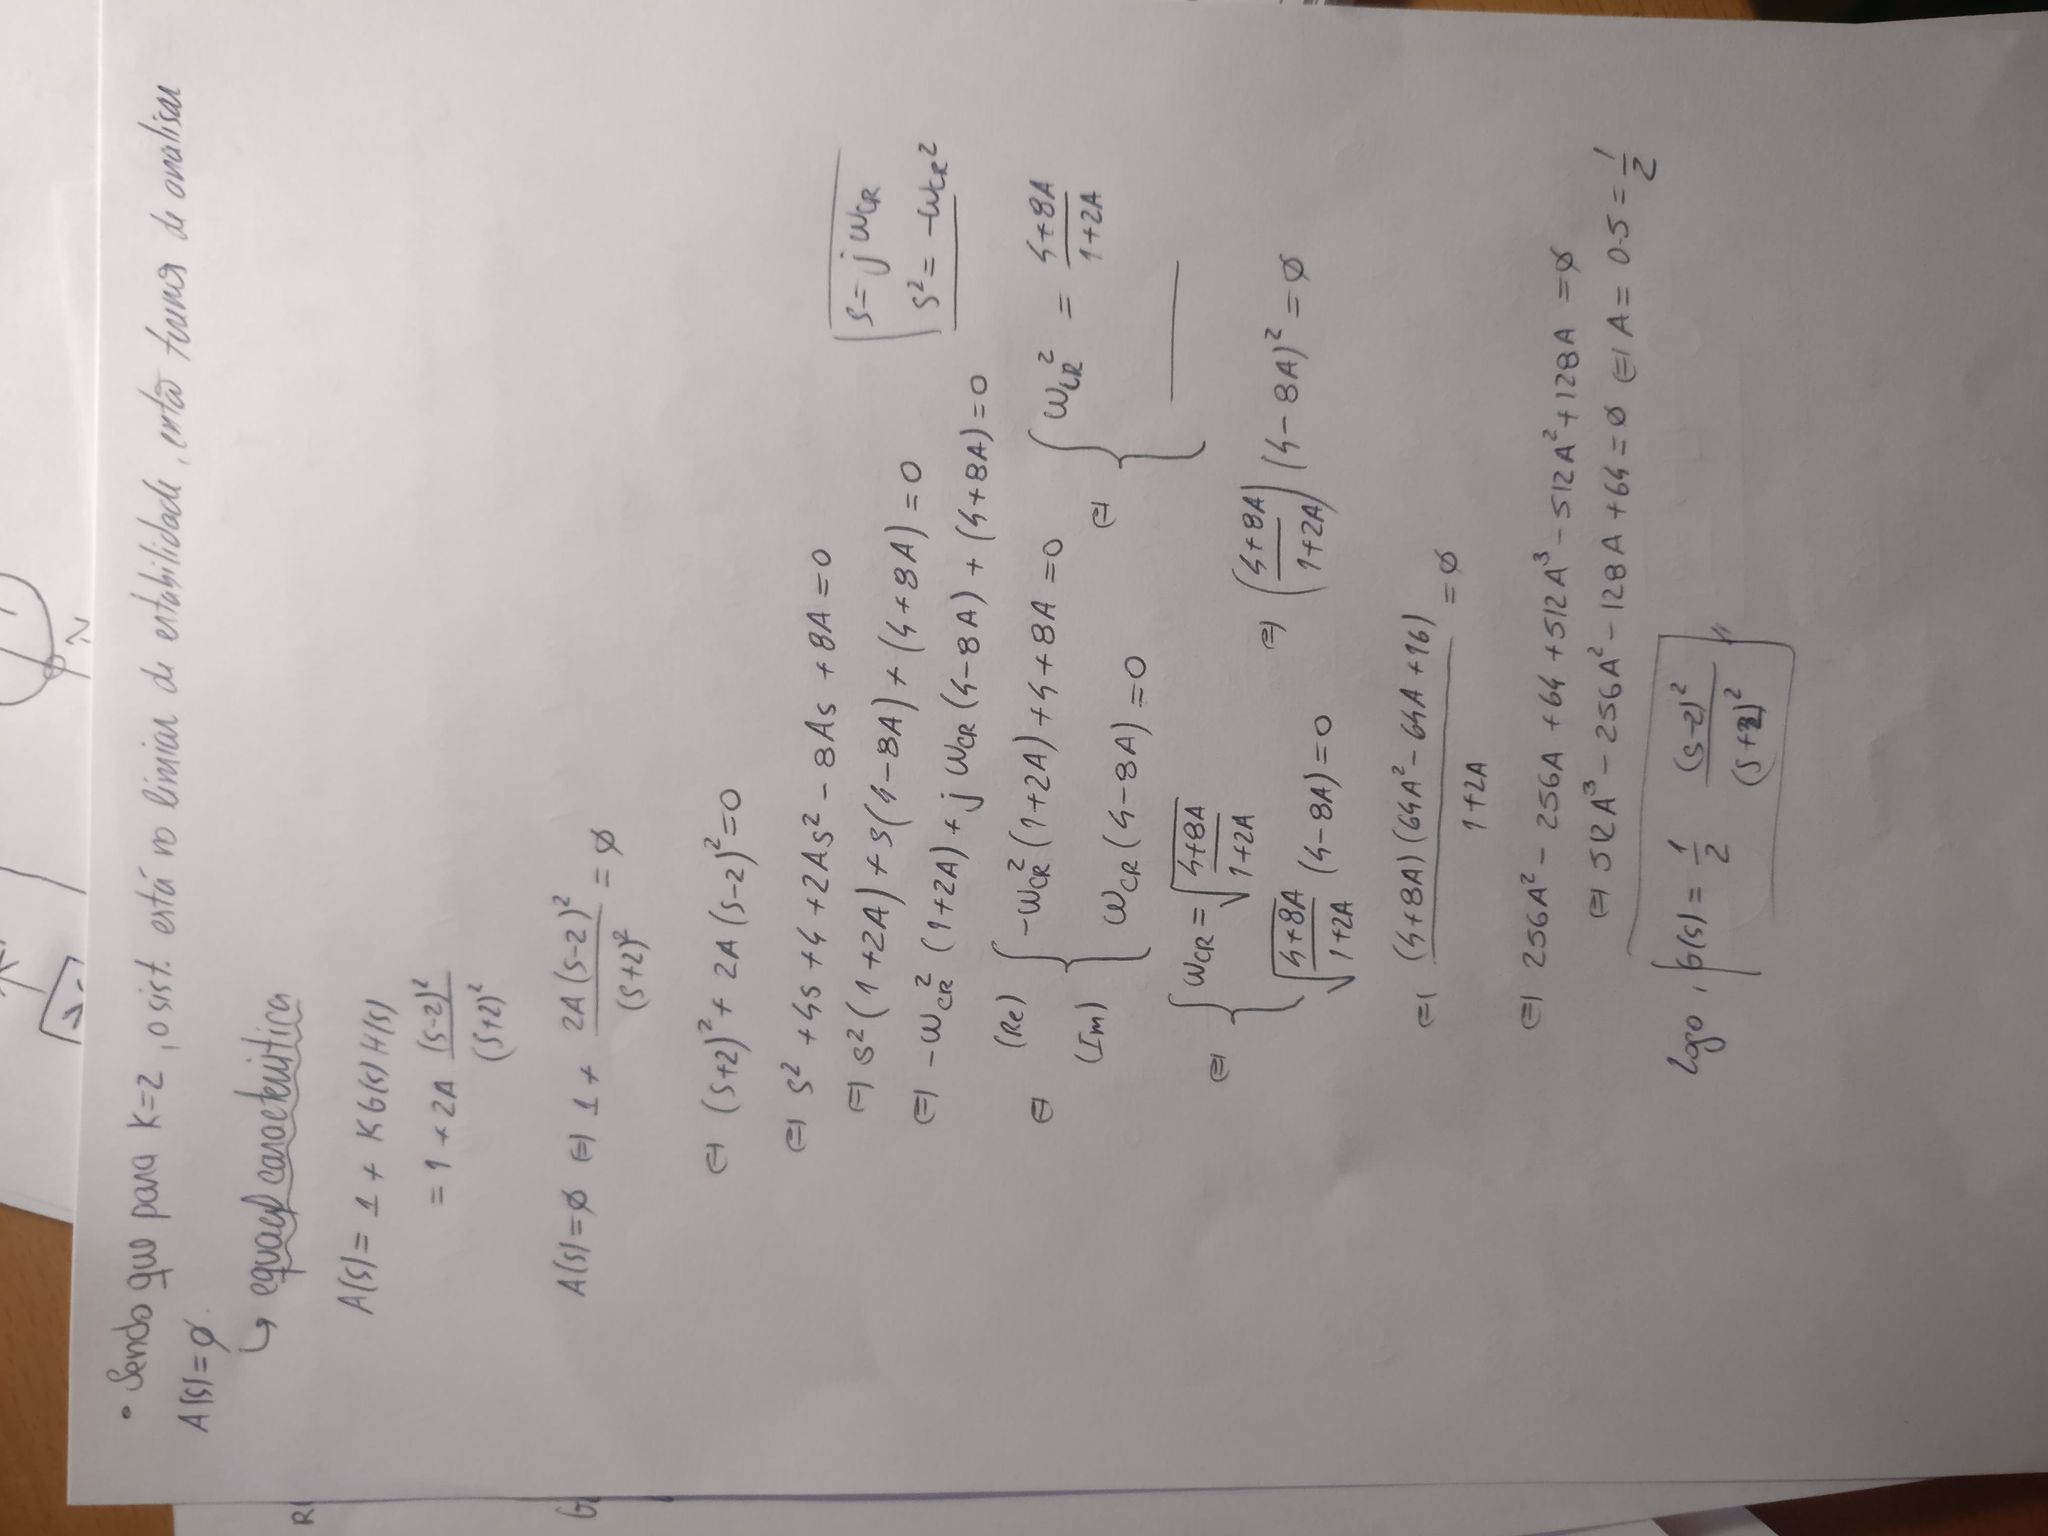 N
• Sendo que para K=2, o sist. está no limiar de estabilidade, então temos de analisar
A(s)=∅.
↳ equação característica
R(
A(s)= 1 + KG(s)H(s)
= 1 + 2A (s-2)² / (s+2)²
G
A(s)=∅ ⇔ 1 + 2A(s-2)² / (s+2)² = ∅
⇔ (s+2)² + 2A(s-2)² = 0
⇔ s² + 4s + 4 + 2As² - 8As + 8A = 0
⇔ s²(1+2A) + s(4-8A) + (4+8A) = 0
s = jωCR
s² = -ωCR²
⇔ -ωCR²(1+2A) + jωCR(4-8A) + (4+8A) = 0
⇔ (Re) { -ωCR²(1+2A) + 4 + 8A = 0
(Im) ωCR(4-8A) = 0
⇔ { ωCR² = (4+8A) / (1+2A)
⇔ { ωCR = √((4+8A) / (1+2A))
√((4+8A) / (1+2A)) (4-8A) = 0
⇔ ((4+8A) / (1+2A)) (4-8A)² = ∅
⇔ (4+8A)(64A² - 64A + 16) / (1+2A) = ∅
⇔ 256A² - 256A + 64 + 512A³ - 512A² + 128A = ∅
⇔ 512A³ - 256A² - 128A + 64 = ∅ ⇔ A = 0.5 = 1/2
Logo, G(s) = 1/2 (s-2)² / (s+2)² //